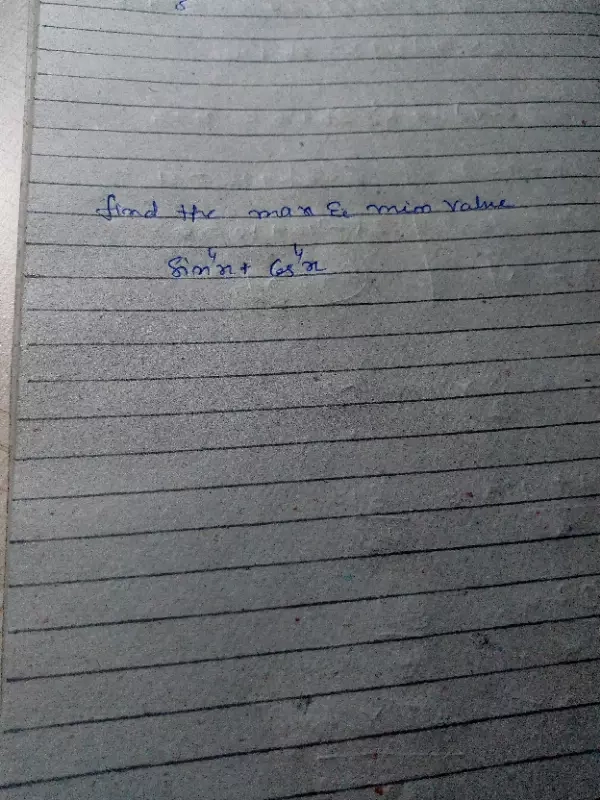 find the max & min value
sin⁴x + cos⁴x